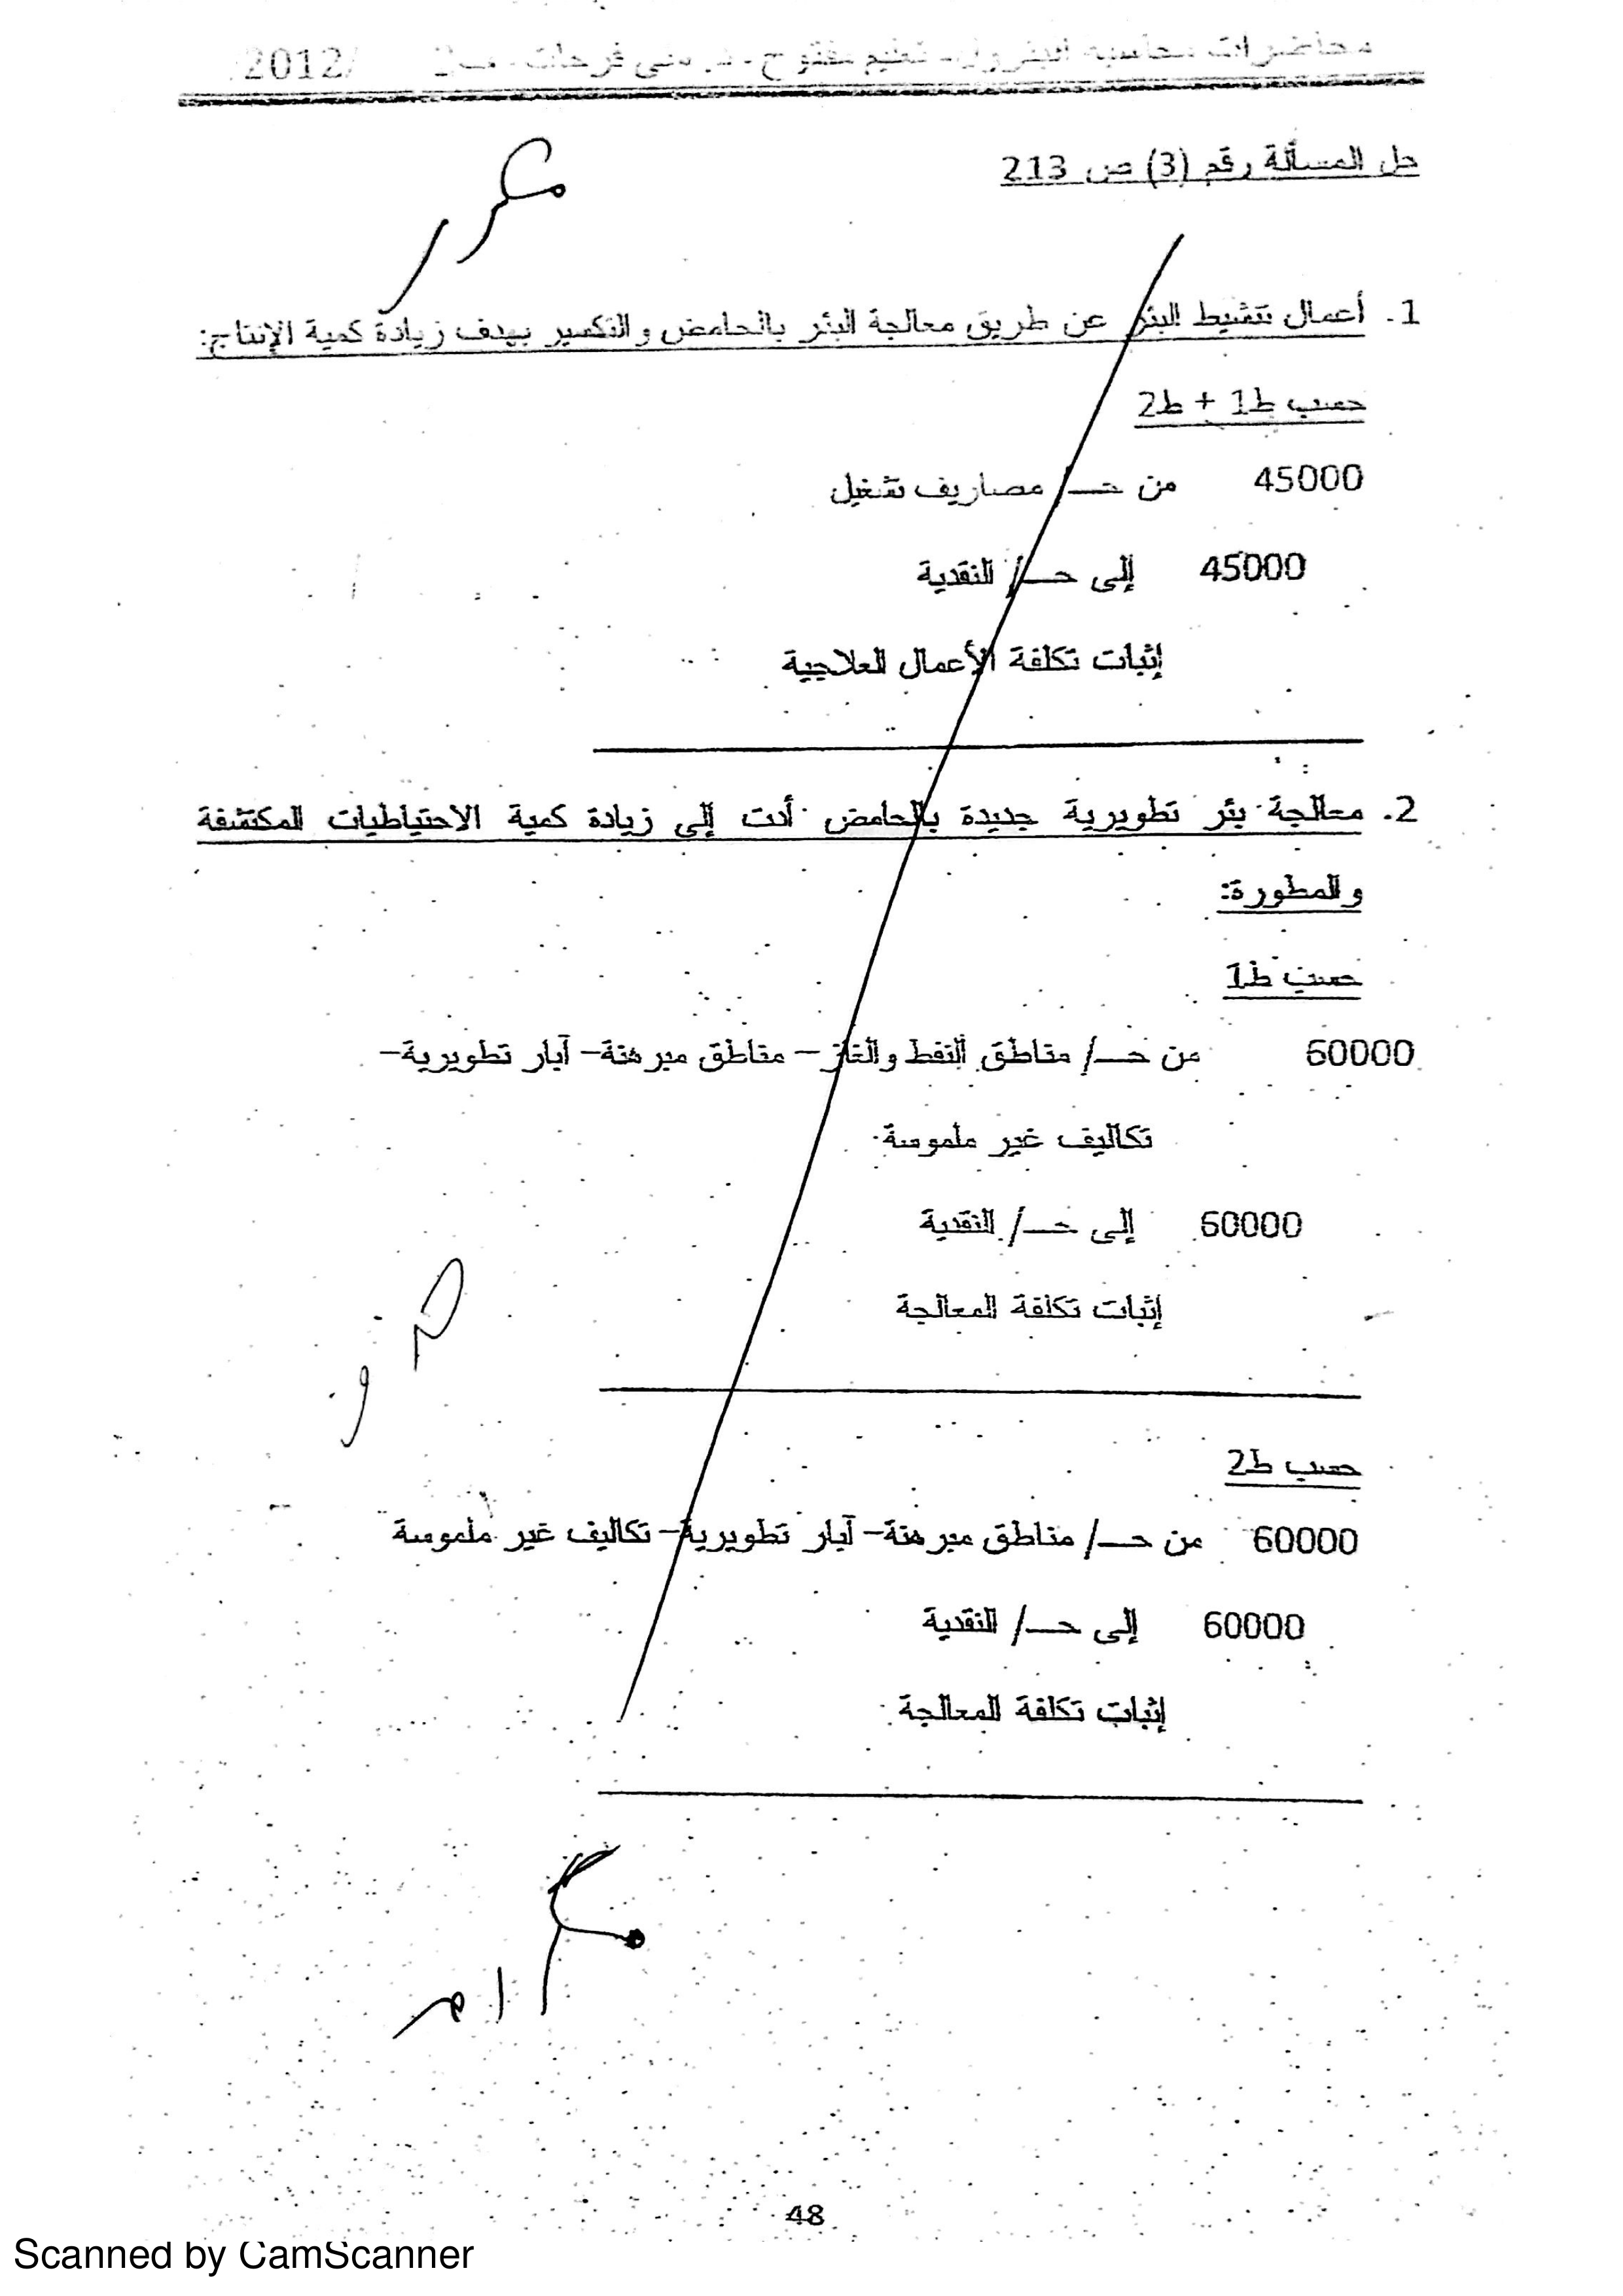 محاضرات محاسبة البترول- تعليم مفتوح- د. منى فرحات- 2012/
حل المسألة رقم (3) ص 213
مكرر
1. أعمال تنشيط البئر عن طريق معالجة البئر بالحامض والتكسير بهدف زيادة كمية الإنتاج:
حسب ط1 + ط2
45000 من حـ/ مصاريف تشغيل
45000 إلى حـ/ النقدية
إثبات تكلفة الأعمال العلاجية
2. معالجة بئر تطويرية جديدة بالحامض أدت إلى زيادة كمية الاحتياطيات المكتشفة
والمطورة:
حسب ط1
60000 من حـ/ مناطق النفط والغاز – مناطق مبرهنة– آبار تطويرية–
تكاليف غير ملموسة
60000 إلى حـ/ النقدية
إثبات تكلفة المعالجة
حسب ط2
60000 من حـ/ مناطق مبرهنة– آبار تطويرية– تكاليف غير ملموسة
60000 إلى حـ/ النقدية
إثبات تكلفة المعالجة
48
Scanned by CamScanner